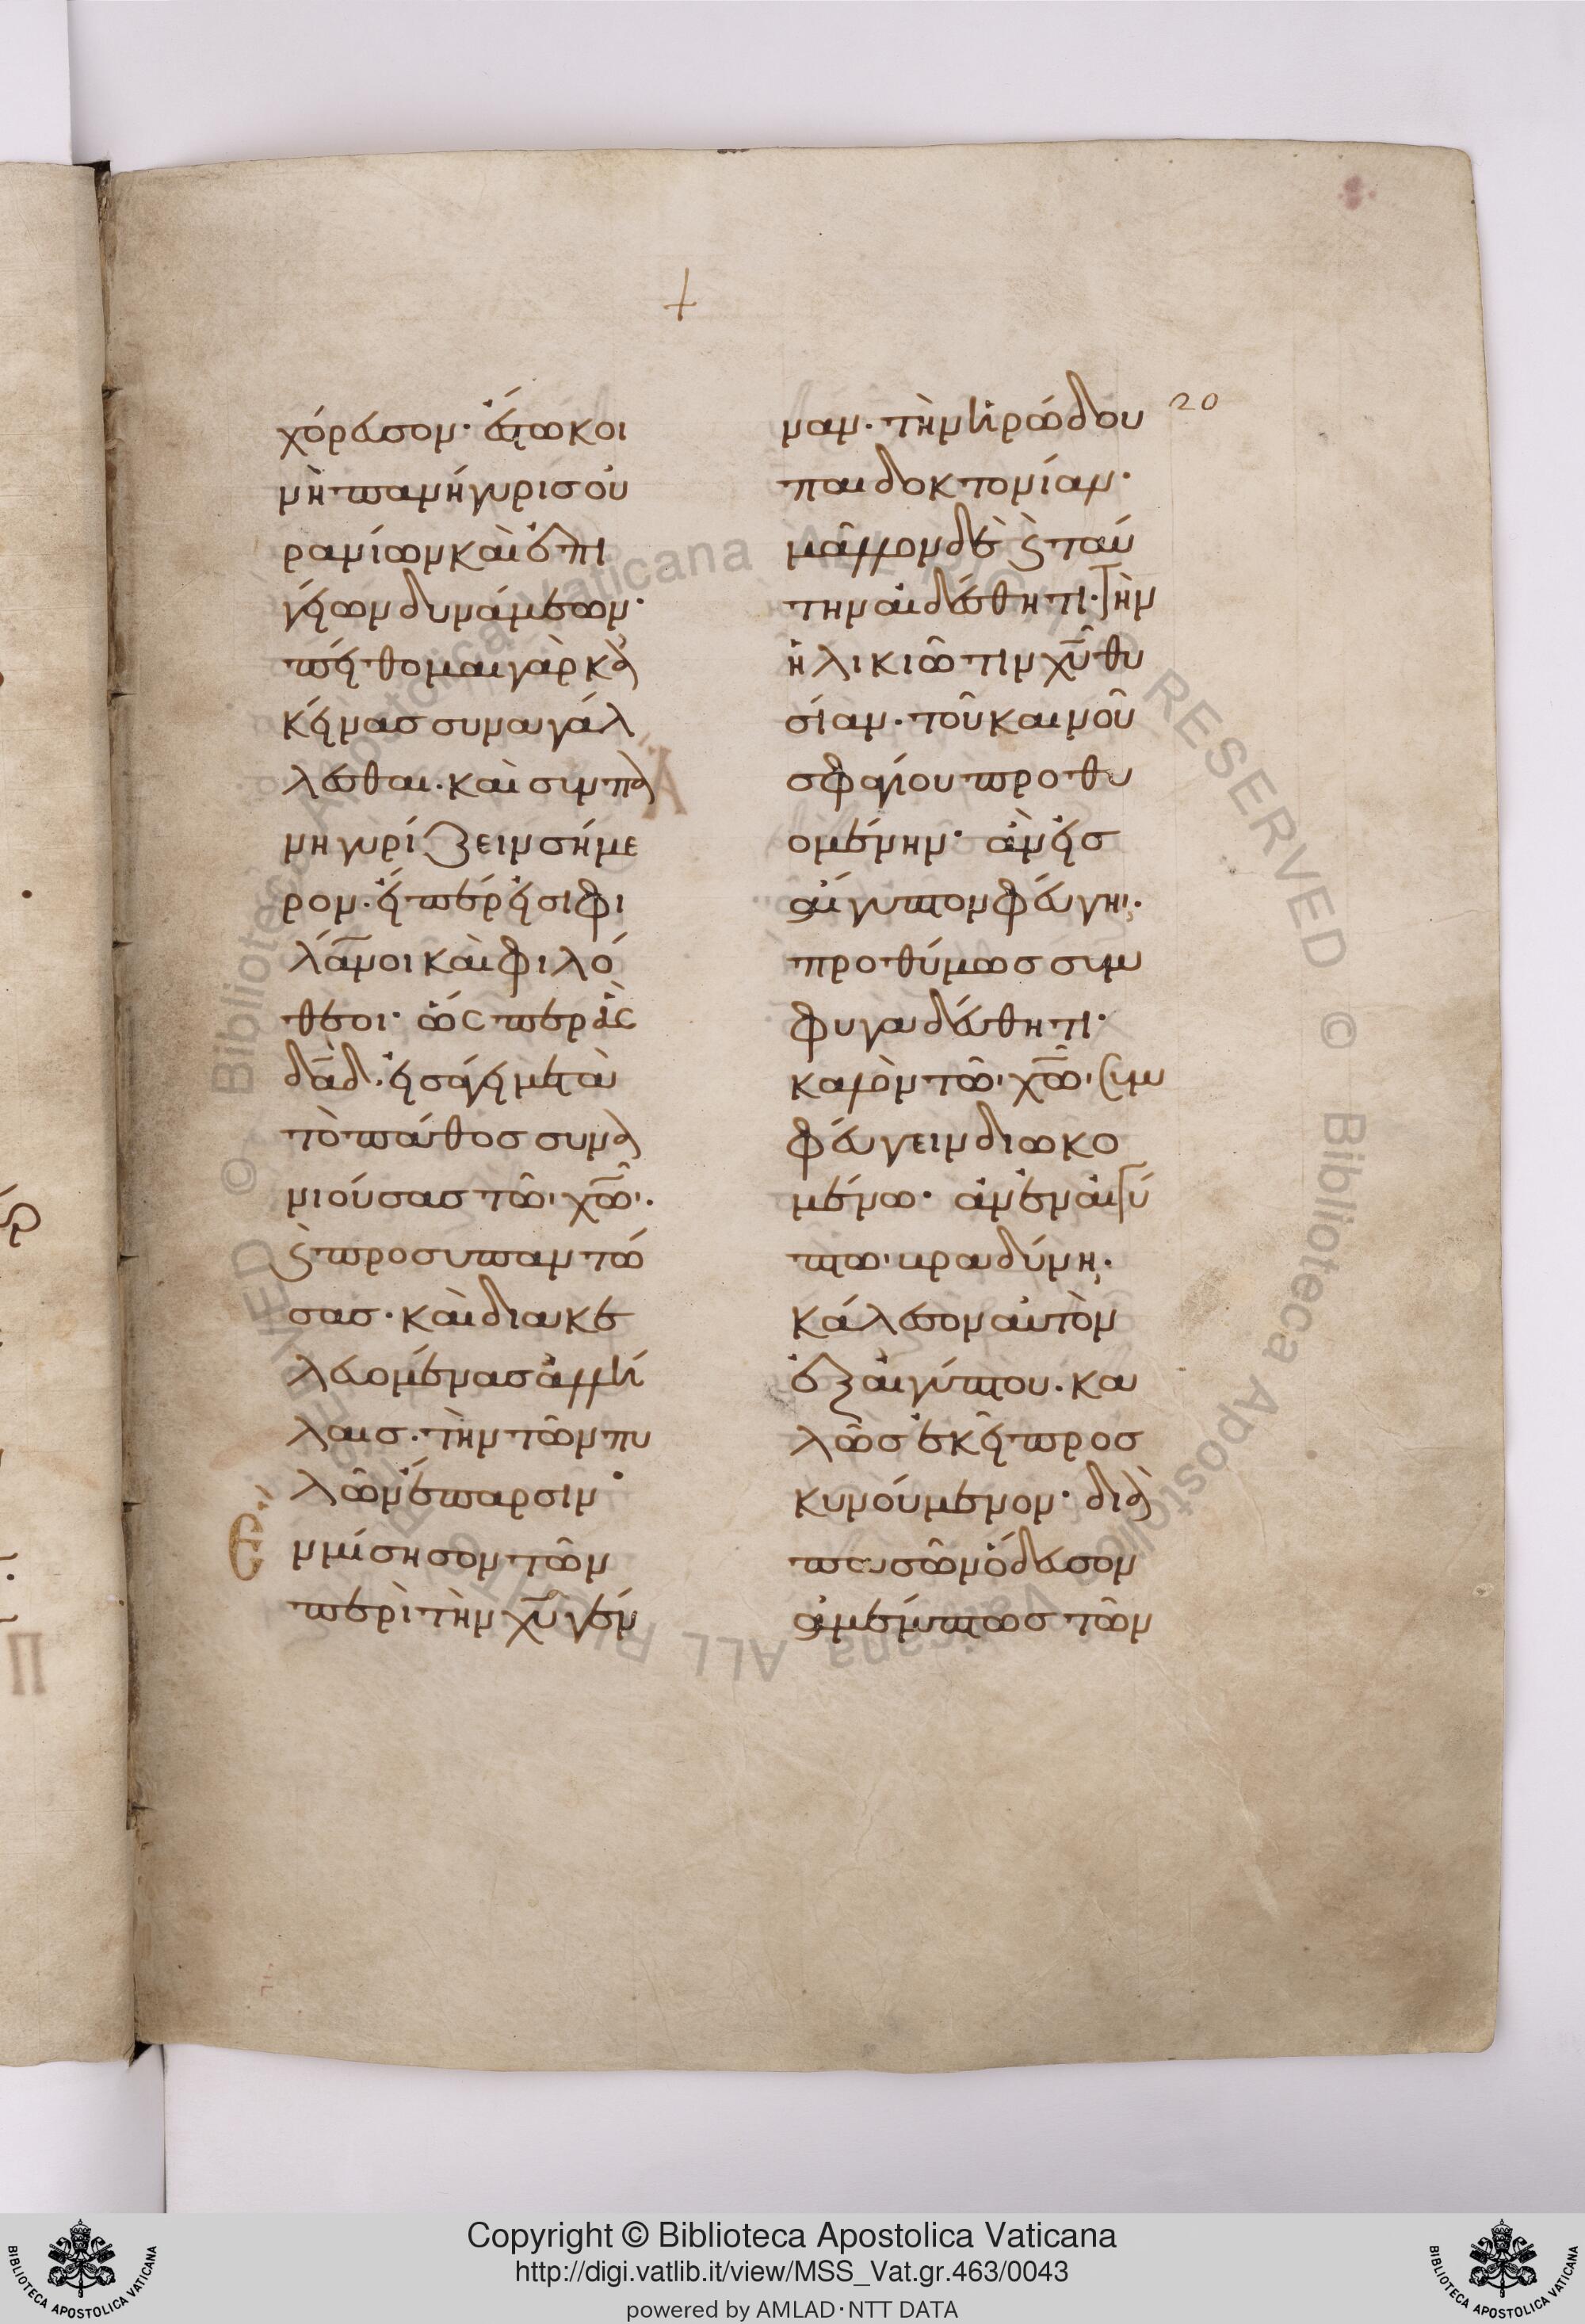 20
χόρευσον· ἔστω κοι
νὴ πανήγυρις οὐ
ρανίων καὶ ἐπι
γείων δυνάμεων·
πείθομαι γὰρ κἀ
κείνας συναγάλ
λεσθαι· καὶ συμπα
νηγυρίζειν σήμε
ρον· εἴπερ εἰσὶ φι
λάνοι καὶ φιλό
θεοι· ὥσπερ ἃς
δᾱδ· εἰσάγει μετὰ
τὸ πάθος συνα
νιούσας τῶ χῶ·
καὶ προσυπαντώ
σας· καὶ διακε
λευομένας ἀλλή
λαις· τὴν τῶν πυ
λῶν ἔπαρσιν·
Ἓν μίσησον τῶν
περὶ τὴν χυ γέν
ναν· τὴν ἡρώδου
παιδοκτονίαν·
μᾶλλον δὲ καὶ ταύ
την αἰδέσθητι· τὴν
ἡλικιῶτιν χυ θυ
σίαν· τοῦ καινοῦ
σφαγίου προθυ
ομένην· ἂν εἰς
αἴγυπτον φεύγη·
προθύμως συμ
φυγαδεύθητι·
καλὸν τῶ χῶ συμ
φεύγειν διωκο
μένω· ἂν ἐν αἰγύ
πτω βραδύνη·
κάλεσον αὐτὸν
ἐξ αἰγύπτου· κα
λῶς ἐκεῖ προσ
κυνούμενον· διὰ
πασῶν ὅδευσον
ἀμέμπτως τῶν
Copyright © Biblioteca Apostolica Vaticana
http://digi.vatlib.it/view/MSS_Vat.gr.463/0043
powered by AMLAD·NTT DATA
BIBLIOTECA APOSTOLICA VATICANA
BIBLIOTECA APOSTOLICA VATICANA